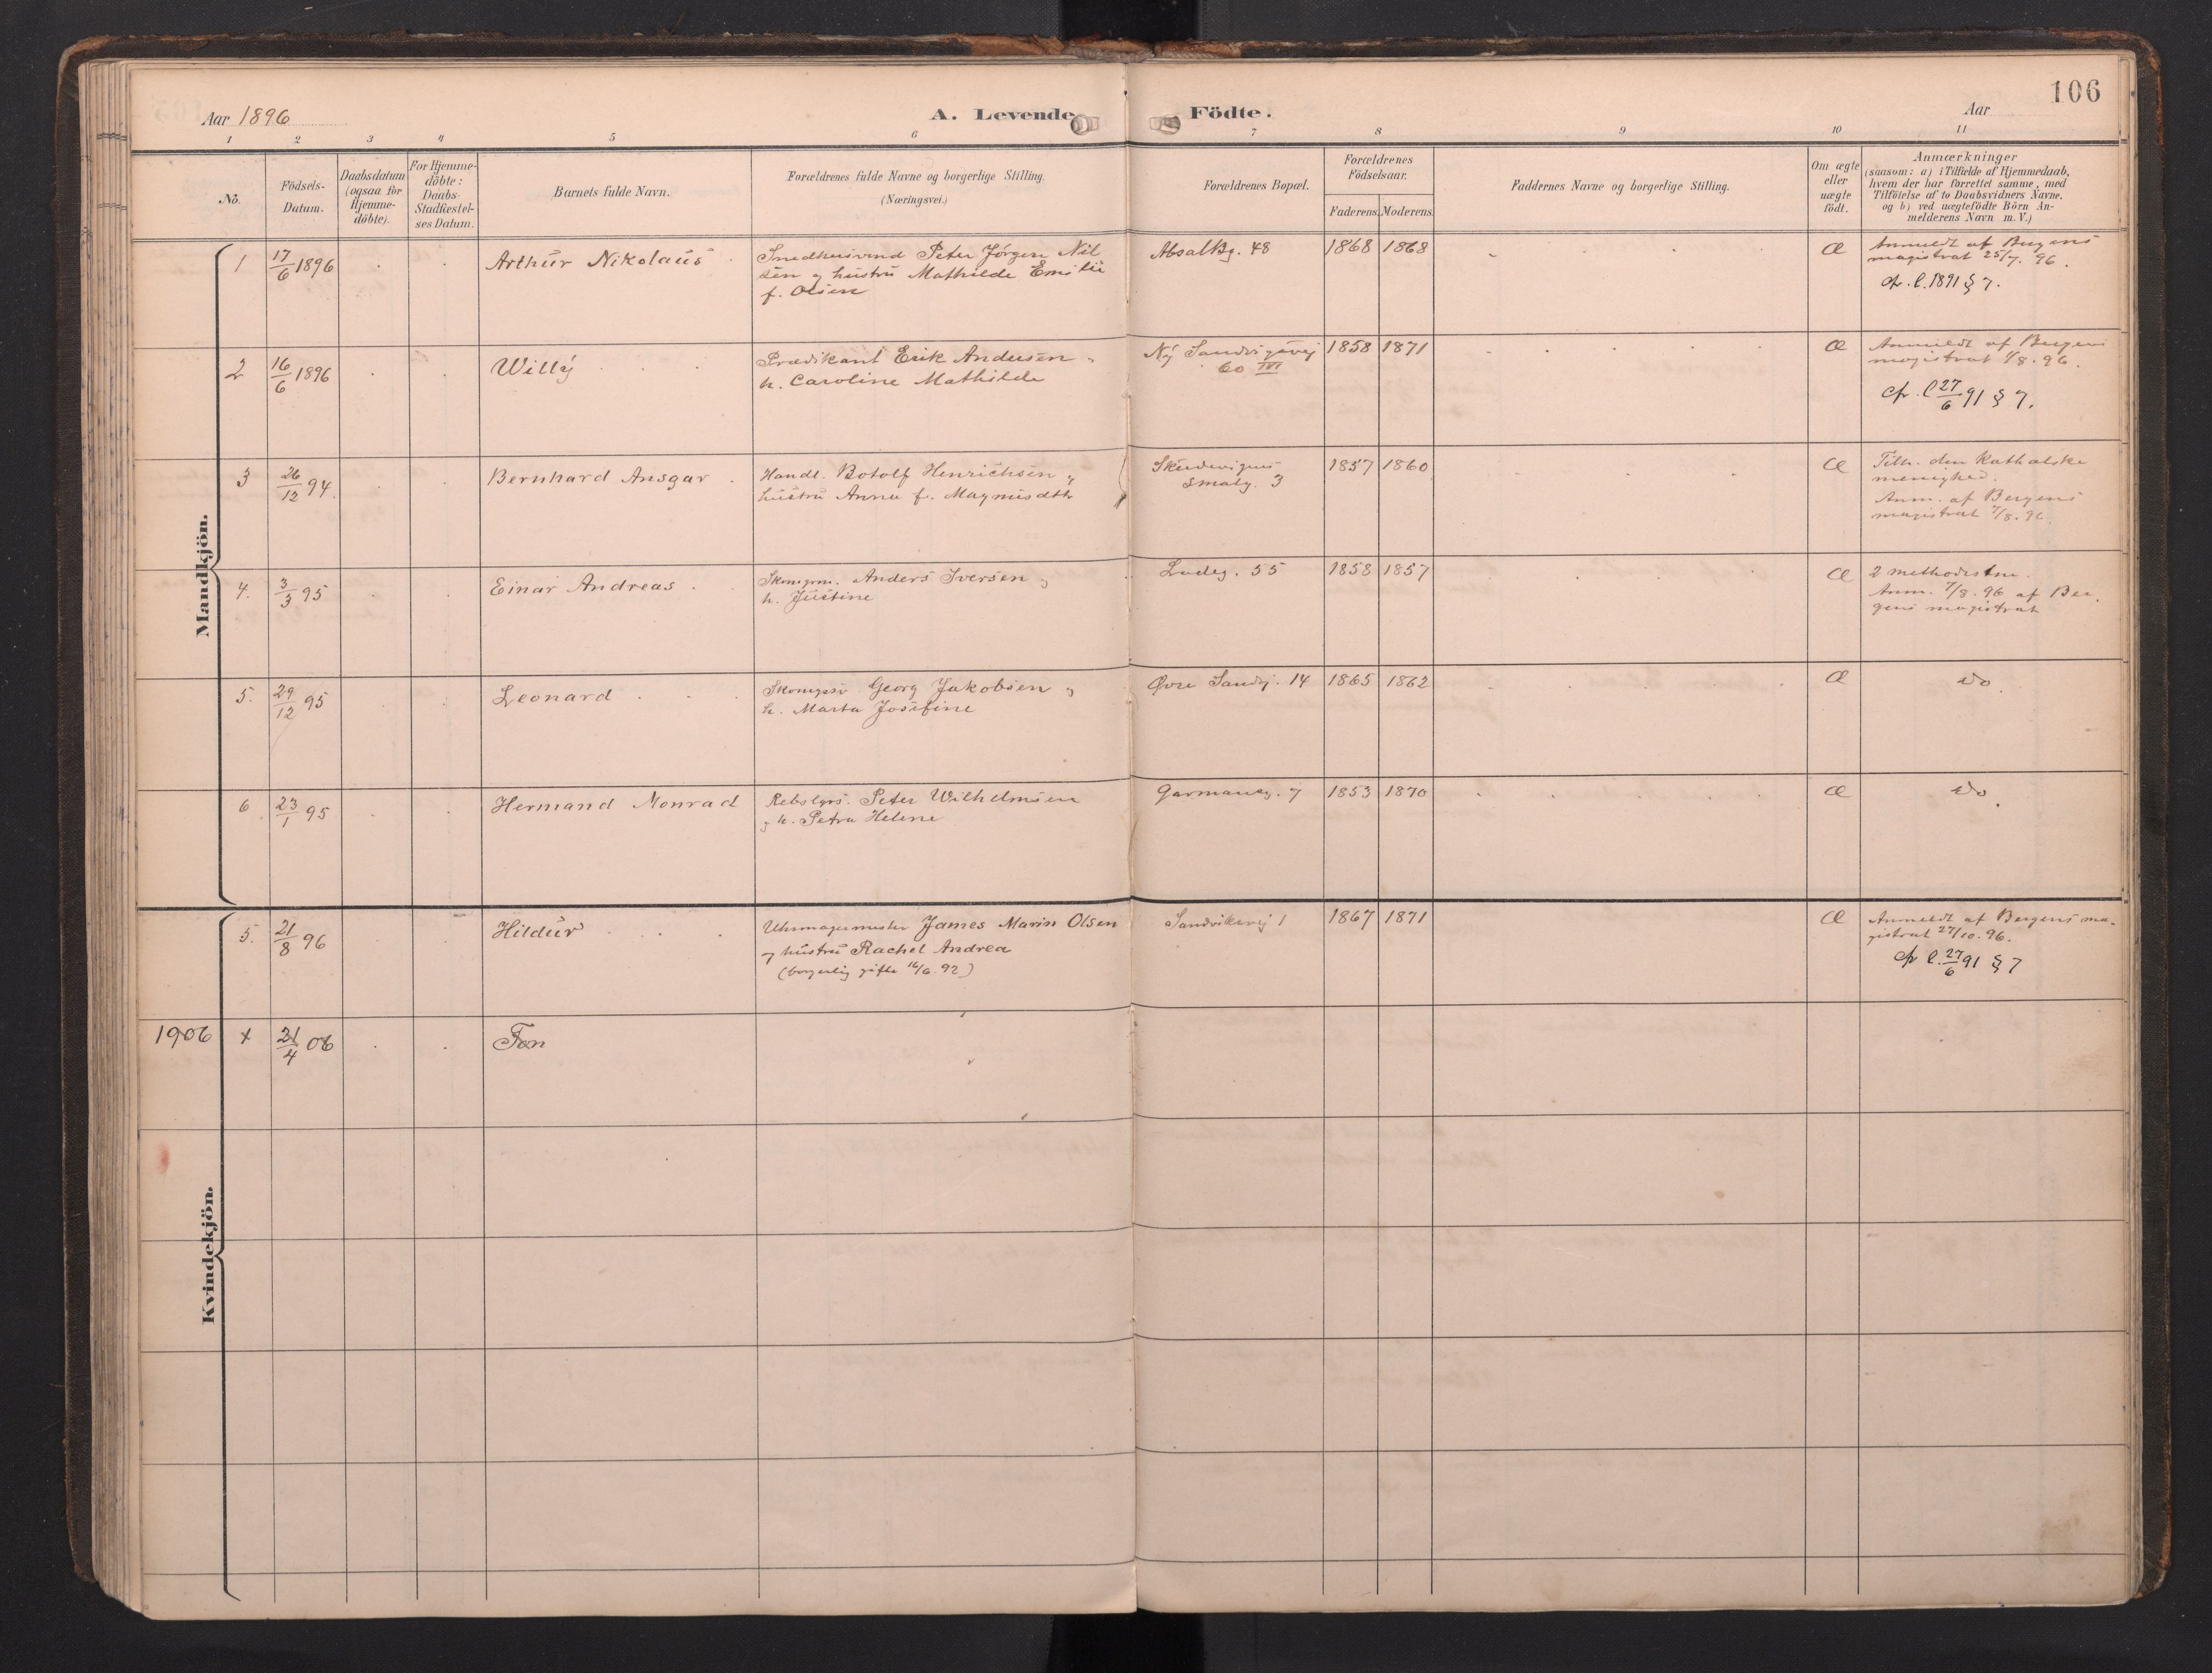 106
Aar 1896
A. Levende Födte.
Aar
1 2 3 4 5 6 7 8 9 10 11
No.
Födsels-
Datum.
Daabsdatum
(ogsaa for
Hjemme-
döbte).
For Hjemme-
döbte:
Daabs-
Stadfæstel-
ses Datum.
Barnets fulde Navn.
Forældrenes fulde Navne og borgerlige Stilling.
(Næringsvei.)
Forældrenes Bopæl.
Forældrenes
Födselsaar.
Faderens. Moderens.
Faddernes Navne og borgerlige Stilling.
Om ægte
eller
uægte
födt.
Anmærkninger
(saasom: a) i Tilfælde af Hjemmedaab,
hvem der har forrettet samme, med
Tilföielse af to Daabsvidners Navne,
og b) ved uægtefödte Börn An-
melderens Navn m.V.)
Mandkjön.
1 17/6 1896 Arthur Nikolaus
Peter Jørgen Nil
sen og hustru Mathilde Emilie
f. Olsen
Absalbg. 48 1868 1868 Æ
Anmeldt af Bergens
magistrat 25/7. 96.
cfr. l. 1891 § 7.
2 16/6 1896 Willy
Prædikant Erik Andersen
h. Caroline Mathilde
Ny Sandvigsvej
60 III
1858 1871 Æ
Anmeldt af Bergens
magistrat /8. 96.
cfr. l 27/6 91 § 7.
3 26/12 94. Bernhard Ansgar
Handl. Botolf Henrichsen og
hustru Anna f. Magnusdtr
Skudevigens
Smalg. 3
1857 1860 Æ
Tilh. den katholske
menighed.
Anm. af Bergens
magistrat 7/8. 96.
4. 3/3 95 Einar Andreas
Anders Iversen og
h. Justine
Ladeg. 55 1858 1857 Æ
2 methodistm.
Anm. 7/8. 96 af Ber
gens magistrat
5. 29/12 95 Leonard
Georg Jakobsen og
h. Marta Josefine
Øvre Sandvj. 14 1865 1862 Æ do.
6 23/1 95 Hermand Monrad
Rebslgrs. Peter Wilhelmsen
og h. Petra Helene
Garmansg. 7 1853 1870 Æ do.
Kvindekjön.
5. 21/8 96 Hildur
Uhrmagermester James Marin Olsen
og hustru Rachel Andrea
(borgerlig gifte 16/6. 92)
Sandviksvej 1 1867 1871 Æ
Anmeldt af Bergens ma-
gistrat 27/10. 96.
cfr l. 27/6 91 § 7
1906 + 21/4 06